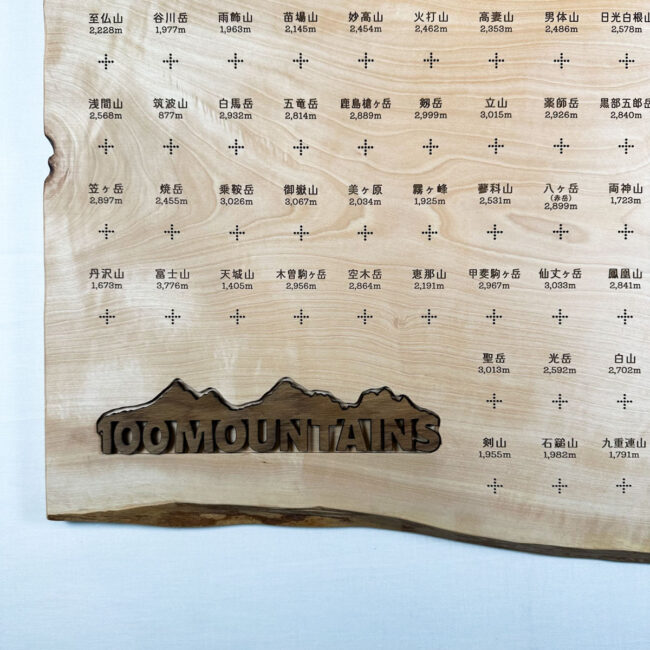 至仏山 谷川岳 雨飾山 苗場山 妙高山 火打山 高妻山 男体山 日光白根山
2,228m 1,977m 1,963m 2,145m 2,454m 2,462m 2,353m 2,486m 2,578m
浅間山 筑波山 白馬岳 五竜岳 鹿島槍ヶ岳 剱岳 立山 薬師岳 黒部五郎岳
2,568m 877m 2,932m 2,814m 2,889m 2,999m 3,015m 2,926m 2,840m
笠ヶ岳 焼岳 乗鞍岳 御嶽山 美ヶ原 霧ヶ峰 蓼科山 八ヶ岳 両神山
(赤岳)
2,897m 2,455m 3,026m 3,067m 2,034m 1,925m 2,531m 2,899m 1,723m
丹沢山 富士山 天城山 木曽駒ヶ岳 空木岳 恵那山 甲斐駒ヶ岳 仙丈ヶ岳 鳳凰山
1,673m 3,776m 1,405m 2,956m 2,864m 2,191m 2,967m 3,033m 2,841m
聖岳 光岳 白山
3,013m 2,592m 2,702m
100MOUNTAINS
剣山 石鎚山 九重連山
1,955m 1,982m 1,791m